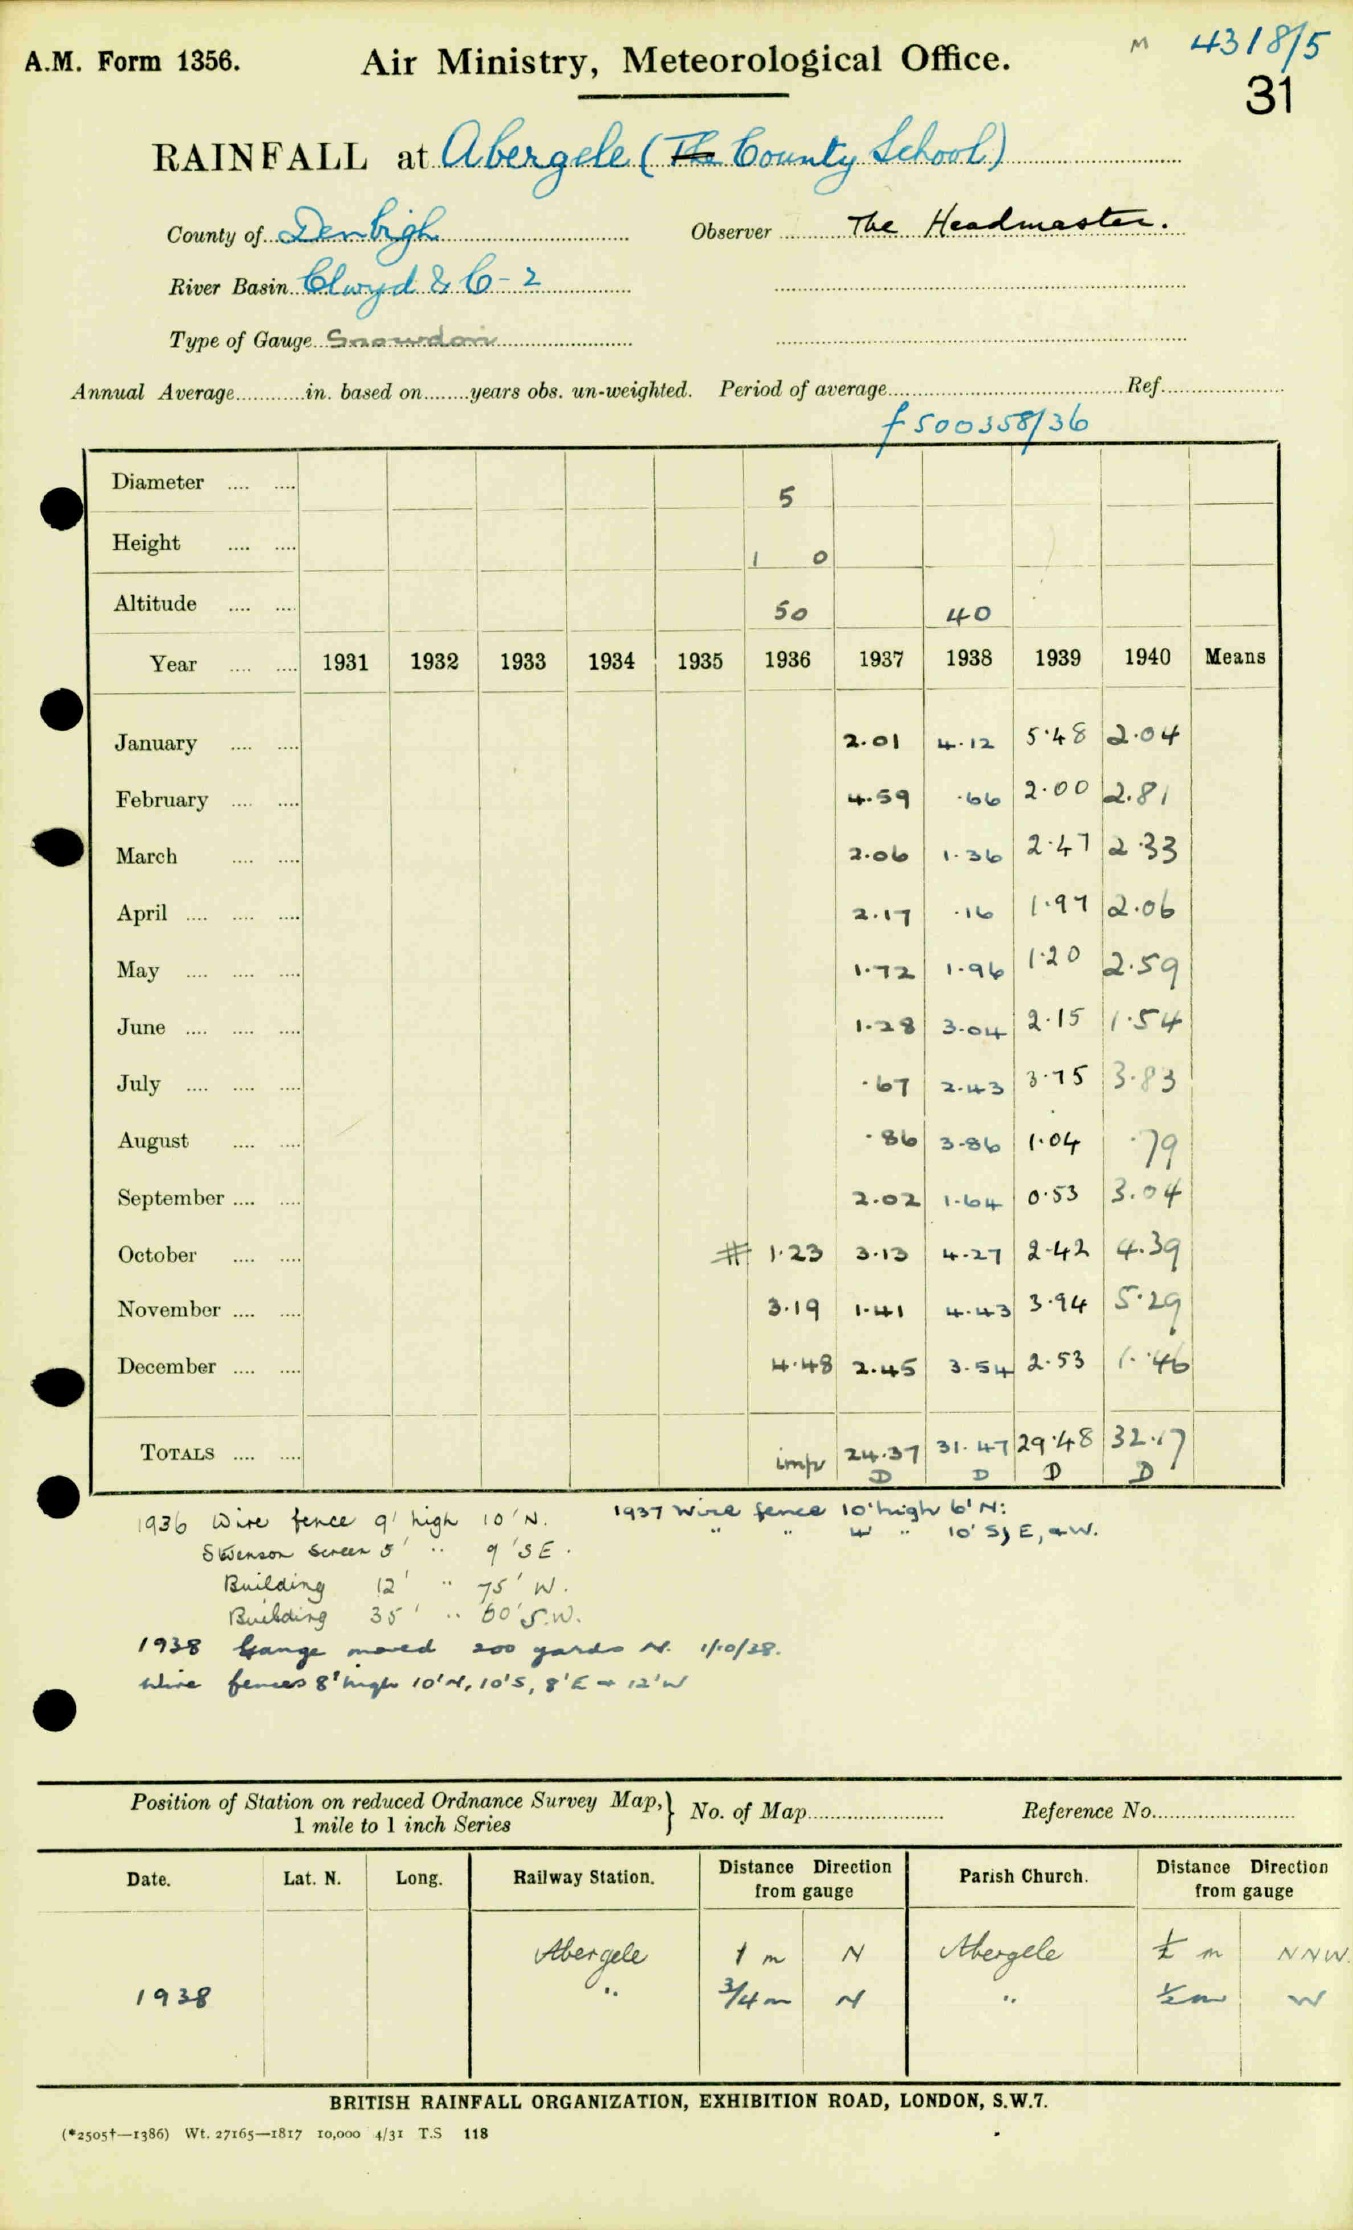 A.M. Form 1356. Air Ministry, Meteorological Office. M 4318/5
31
RAINFALL at Abergele (The County School)
County of Denbigh Observer The Headmaster.
River Basin Clwyd & C-2
Type of Gauge Snowdon
Annual Average............in. based on........years obs. un-weighted. Period of average........ Ref........
f 500358/36
Diameter .... .... 5
Height .... .... 1 0
Altitude .... .... 50 40
Year .... .... 1931 1932 1933 1934 1935 1936 1937 1938 1939 1940 Means
January .... .... 2.01 4.12 5.48 2.04
February .... .... 4.59 .66 2.00 2.81
March .... .... 2.06 1.36 2.47 2.33
April .... .... .... 2.17 .16 1.97 2.06
May .... .... .... 1.72 1.96 1.20 2.59
June .... .... .... 1.28 3.04 2.15 1.54
July .... .... .... .67 2.43 3.75 3.83
August .... .... .86 3.86 1.04 .79
September .... .... 2.02 1.64 0.53 3.04
October .... .... # 1.23 3.13 4.27 2.42 4.39
November .... .... 3.19 1.41 4.43 3.94 5.29
December .... .... 4.48 2.45 3.54 2.53 1.46
TOTALS .... .... imp 24.37 31.47 29.48 32.17
D D D D
1936 Wire fence 9' high 10' N. 1937 Wire fence 10' high 6' N:
" " 4 " 10' S, E, & W.
Stevenson Screen 5' " 9' SE.
Building 12' " 75' W.
Building 35' " 60' S.W.
1938 Gauge moved 200 yards N. 1/10/38.
Wire fences 8' high 10' N, 10' S, 8' E + 12' W
Position of Station on reduced Ordnance Survey Map, } No. of Map........ Reference No........
1 mile to 1 inch Series
Date. Lat. N. Long. Railway Station. Distance Direction from gauge Parish Church. Distance Direction from gauge
Abergele 1 m N Abergele m NNW.
1938 " 3/4 m N " 1/2 m W
BRITISH RAINFALL ORGANIZATION, EXHIBITION ROAD, LONDON, S.W.7.
(*2505†—1386) Wt. 27165—1817 10,000 4/31 T.S 118